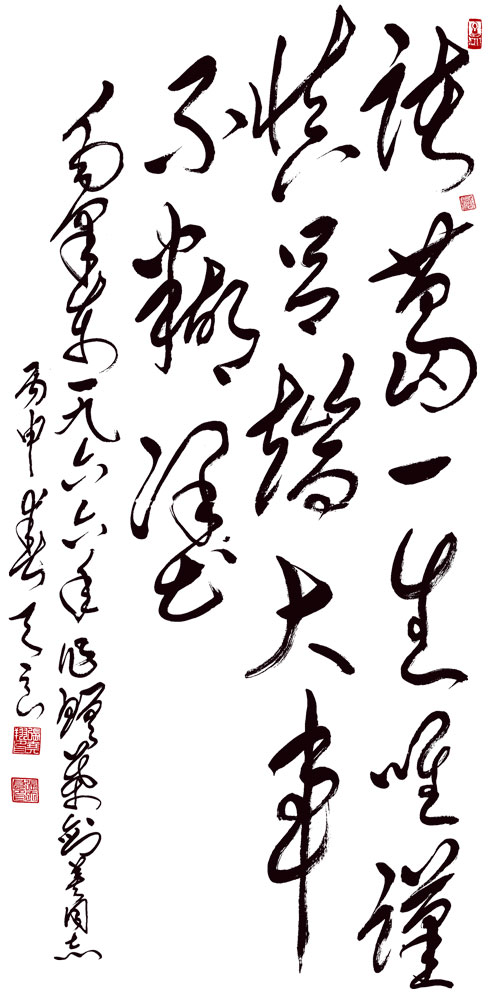 诸葛一生唯谨
慎吕端大事
不糊涂
毛泽东一九六六年改赠叶剑英同志
丙申春天言